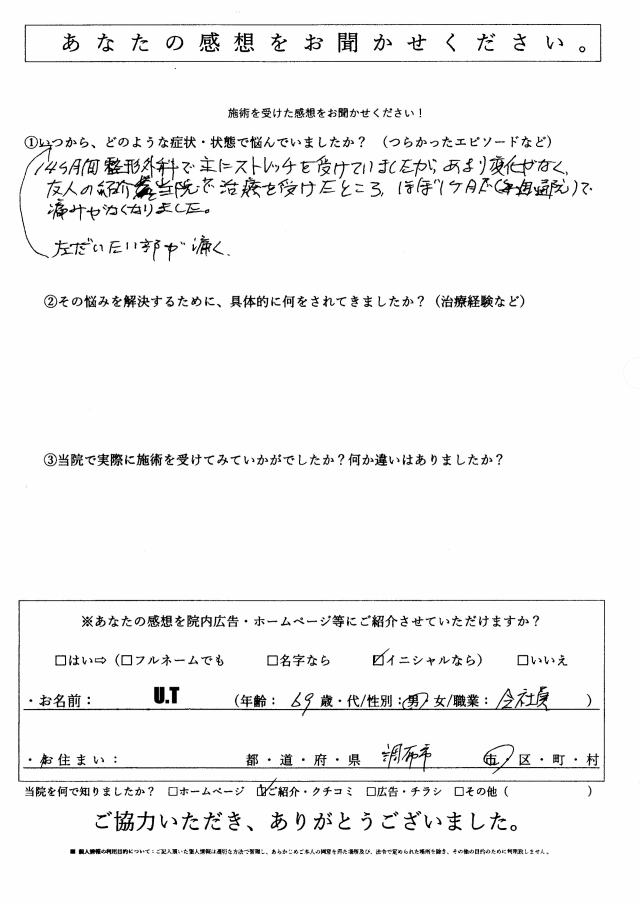 あなたの感想をお聞かせください。
施術を受けた感想をお聞かせください！
①いつから、どのような症状・状態で悩んでいましたか？（つらかったエピソードなど）
14ヶ月間整形外科で主にストレッチを受けていましたが、あまり変化がなく、
友人の紹介 当院で治療を受けたところ、ほぼ1ヶ月で（ 通院）で
痛みがなくなりました。
左だいたい部が痛く、
②その悩みを解決するために、具体的に何をされてきましたか？（治療経験など）
③当院で実際に施術を受けてみていかがでしたか？何か違いはありましたか？
※あなたの感想を院内広告・ホームページ等にご紹介させていただけますか？
□はい⇨（□フルネームでも □名字なら ☑イニシャルなら） □いいえ
・お名前： U.T （年齢： 69 歳・代/性別：男・女/職業： 会社員 ）
・お住まい： 都・道・府・県 調布市 市・区・町・村
当院を何で知りましたか？ □ホームページ ☑ご紹介・クチコミ □広告・チラシ □その他（ ）
ご協力いただき、ありがとうございました。
※ 個人情報の利用目的について：ご記入頂いた個人情報は適切な方法で管理し、あらかじめご本人の同意を得た場所及び、法令で定められた場所を除き、その他の目的のために利用致しません。